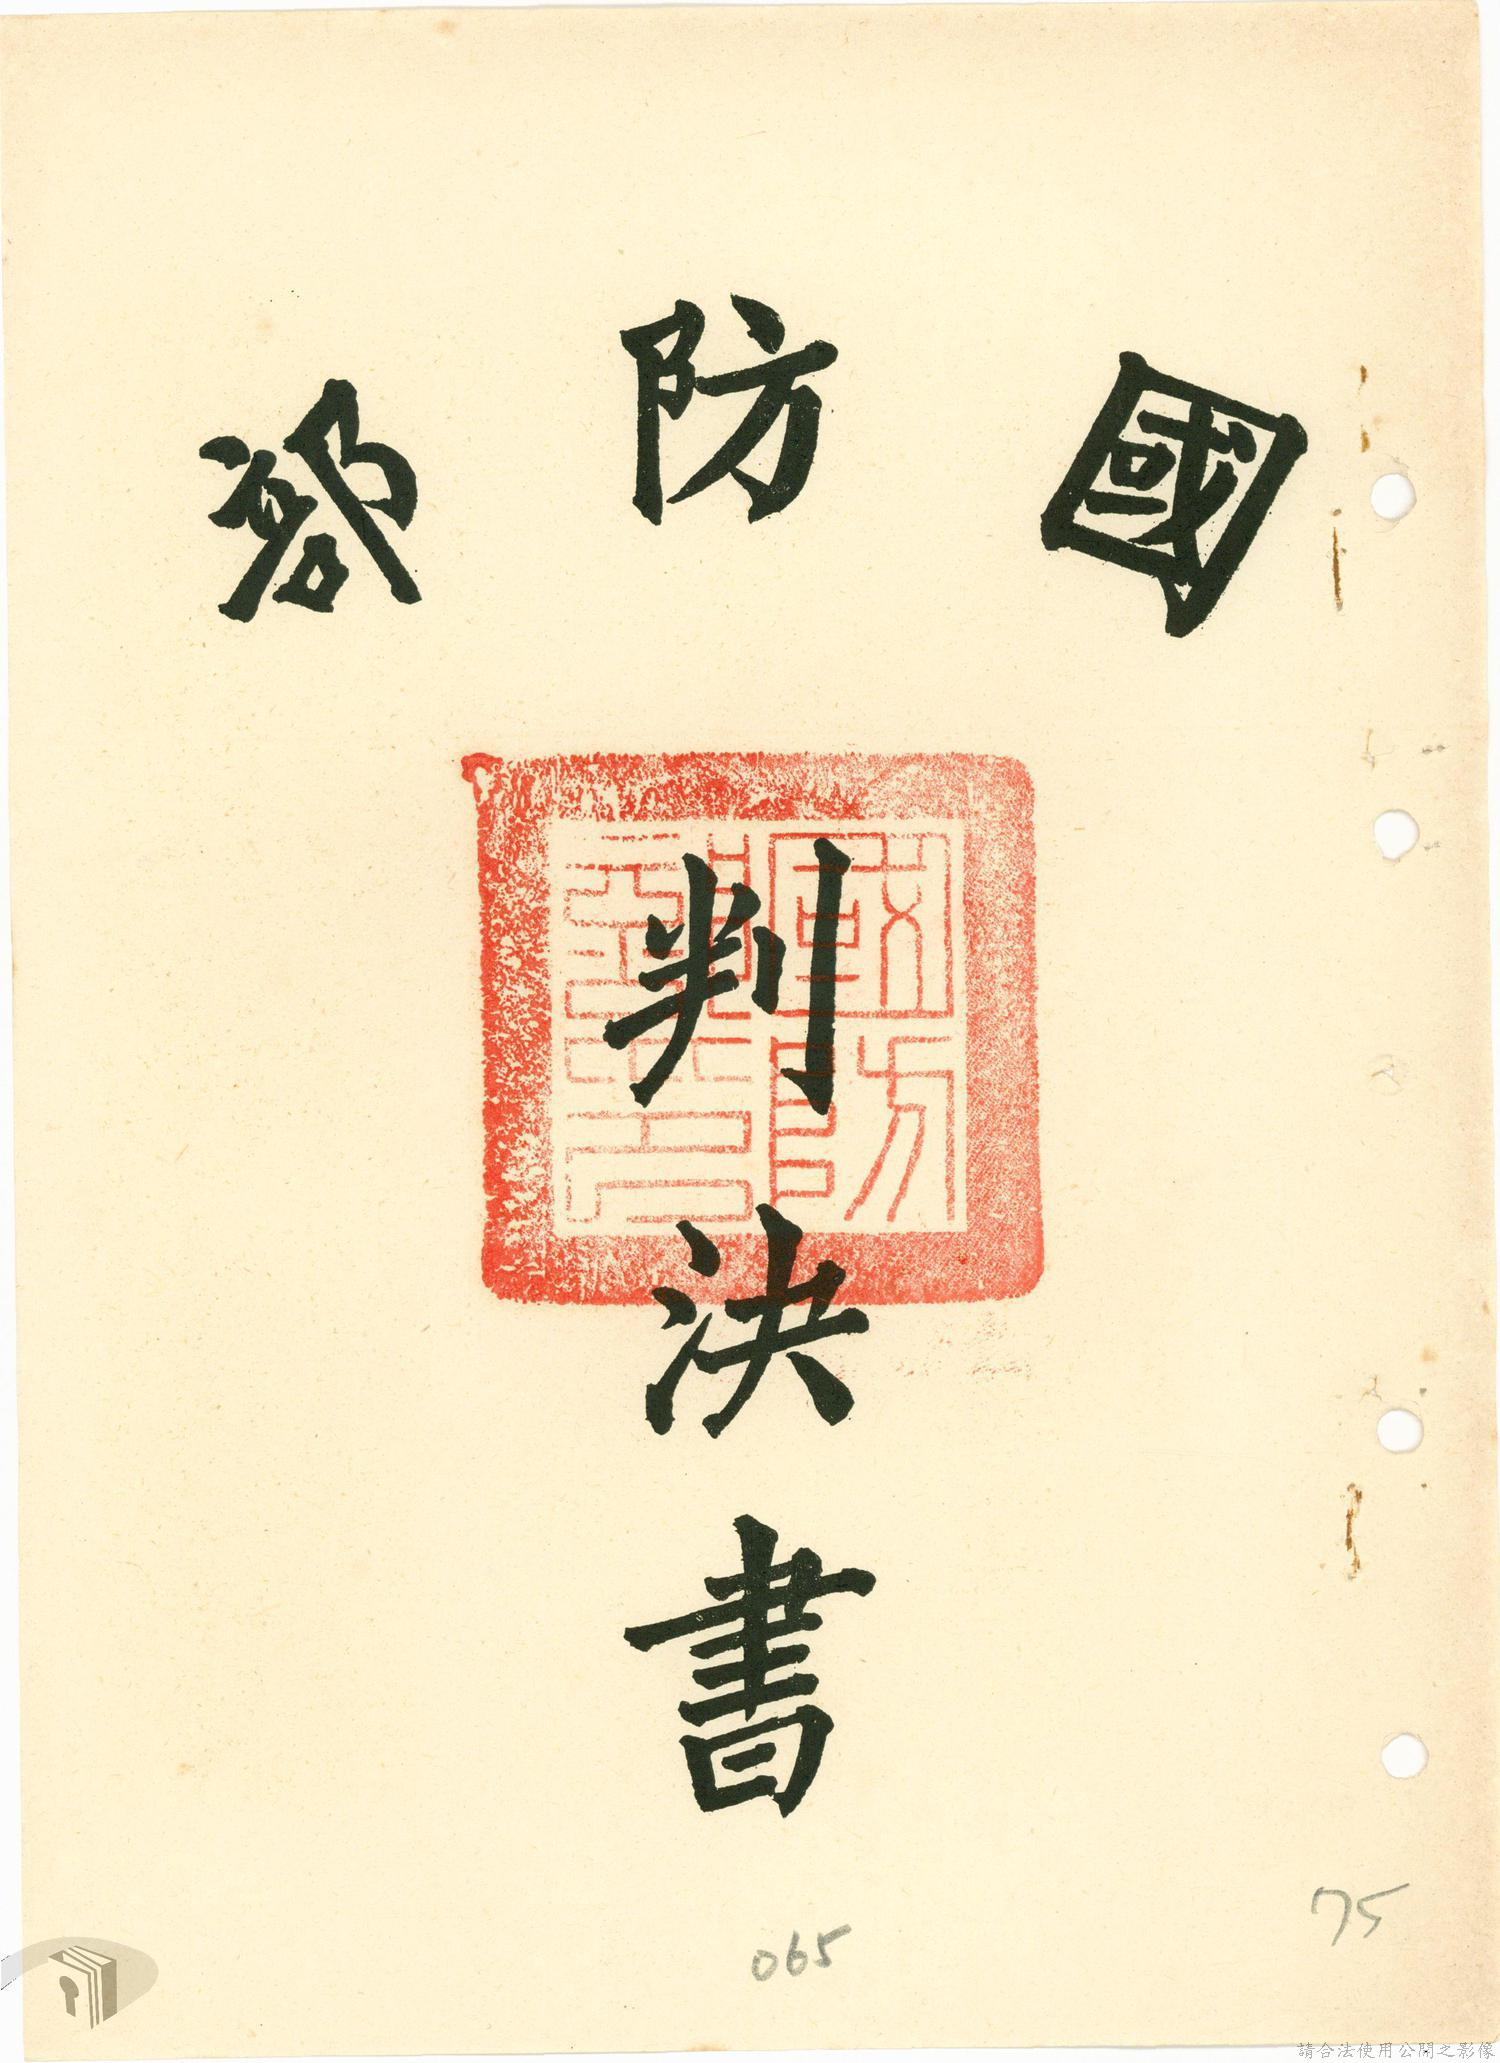 國防部
國防部印
判決書
75
065
請合法使用公開之影像